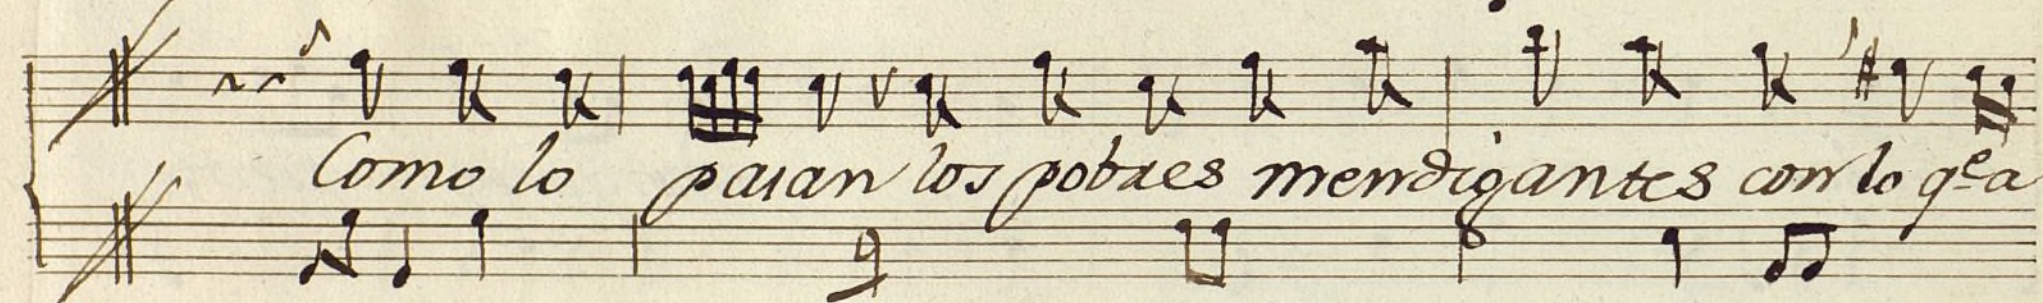 Como lo pasan los pobres mendigantes con lo qe a